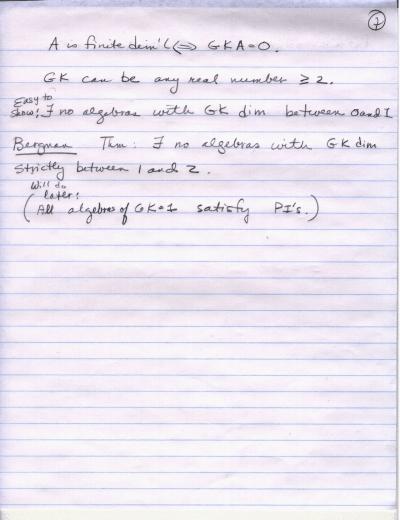 7
A is finite dim'l ⟺ GK A = 0.
GK can be any real number ≥ 2.
Easy to
show! ∃ no algebras with GK dim between 0 and 1
Bergman Thm: ∃ no algebras with GK dim
strictly between 1 and 2.
Will do
later!
(All algebras of GK=1 satisfy PI's.)